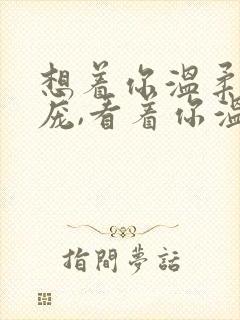 想着你温柔
庞,看着你温
指間夢話